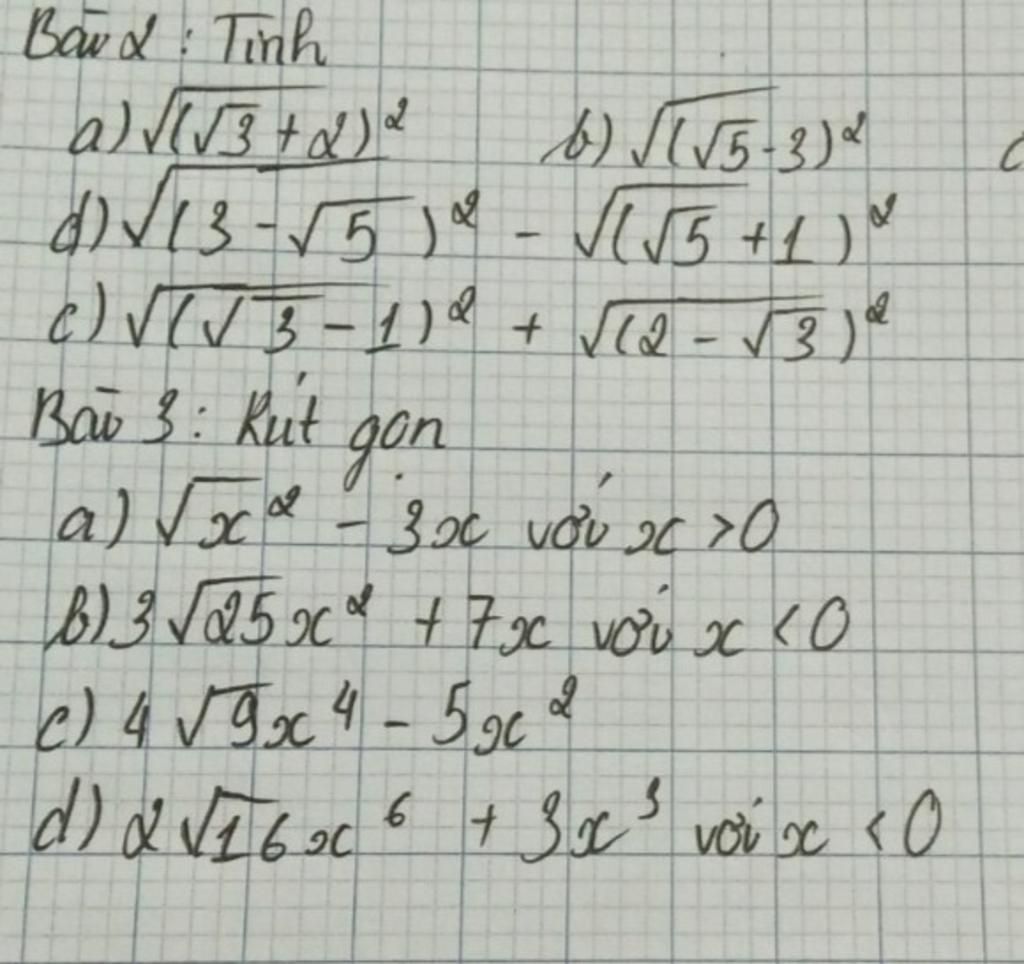 Bài 2 : Tính
a) √(√3 + 2)² b) √(√5 - 3)²
d) √(3 - √5)² - √(√5 + 1)²
c) √(√3 - 1)² + √(2 - √3)²
Bài 3 : Rút gọn
a) √x² - 3x với x > 0
b) 3√25x² + 7x với x < 0
c) 4√9x⁴ - 5x²
d) 2√16x⁶ + 3x³ với x < 0